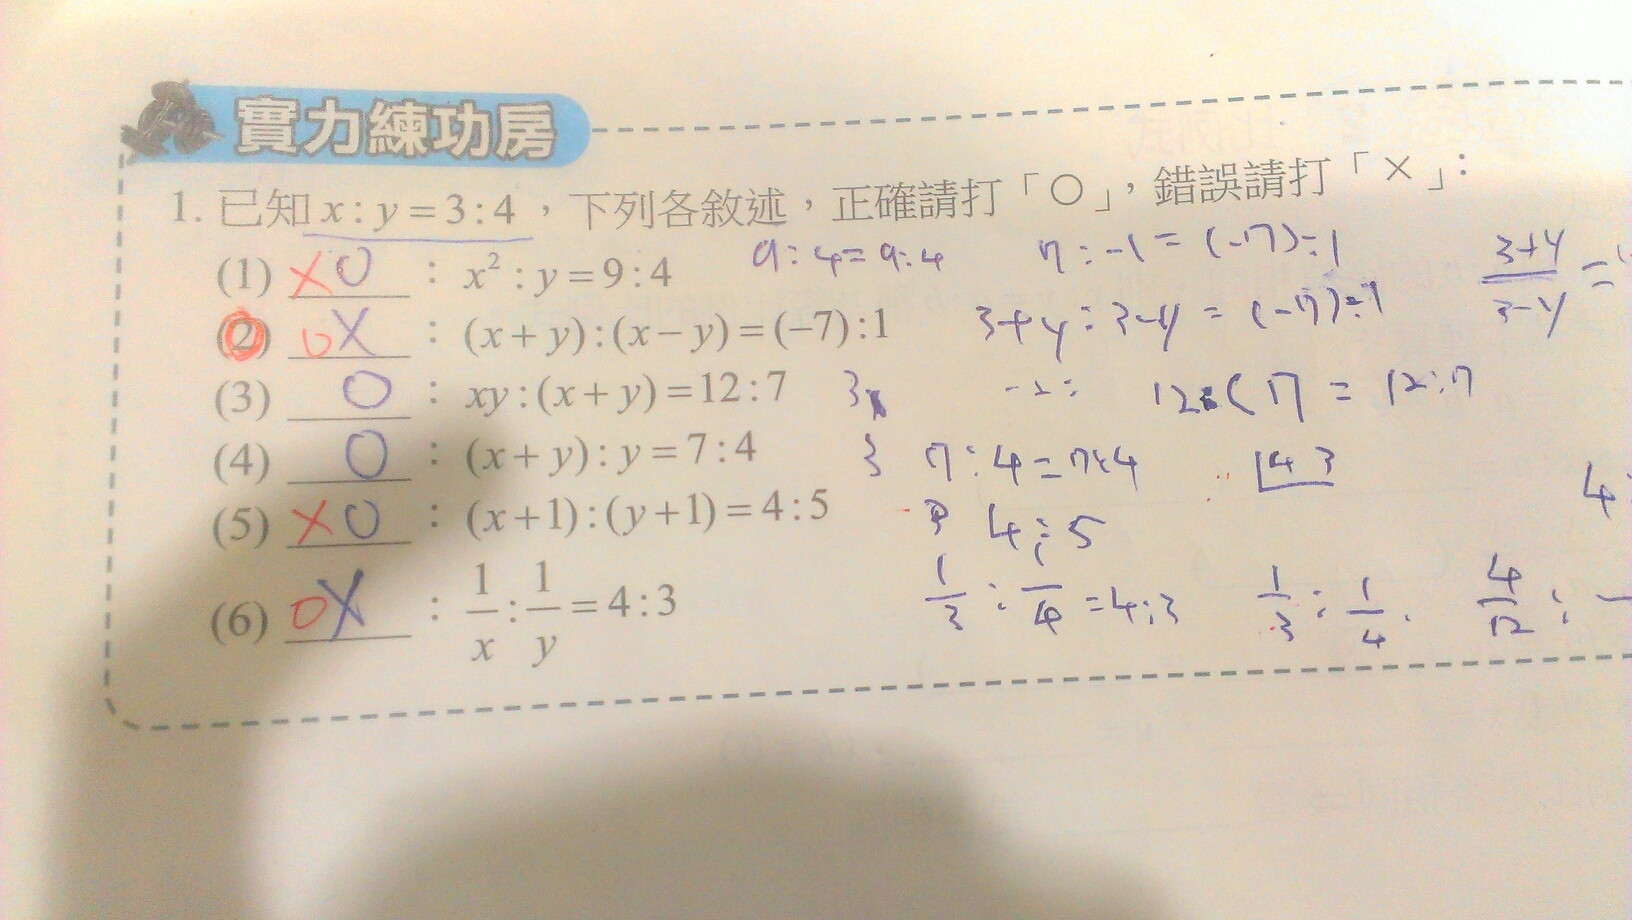 實力練功房
1. 已知 x:y=3:4,下列各敘述,正確請打「○」,錯誤請打「×」:
(1) ×0 : x²:y=9:4 9:4=9:4 7:-1=(-7):1
(2) 0× : (x+y):(x-y)=(-7):1 3+y:3-y=(-7):1 3+y/3-y=
(3) 0 : xy:(x+y)=12:7 3 -2: 12:(7=12:7
(4) 0 : (x+y):y=7:4 3 7:4=7:4 4 3
(5) ×0 : (x+1):(y+1)=4:5 4:5
(6) 0× : 1/x:1/y=4:3 1/3:1/4=4:3 1/3:1/4 4/12: